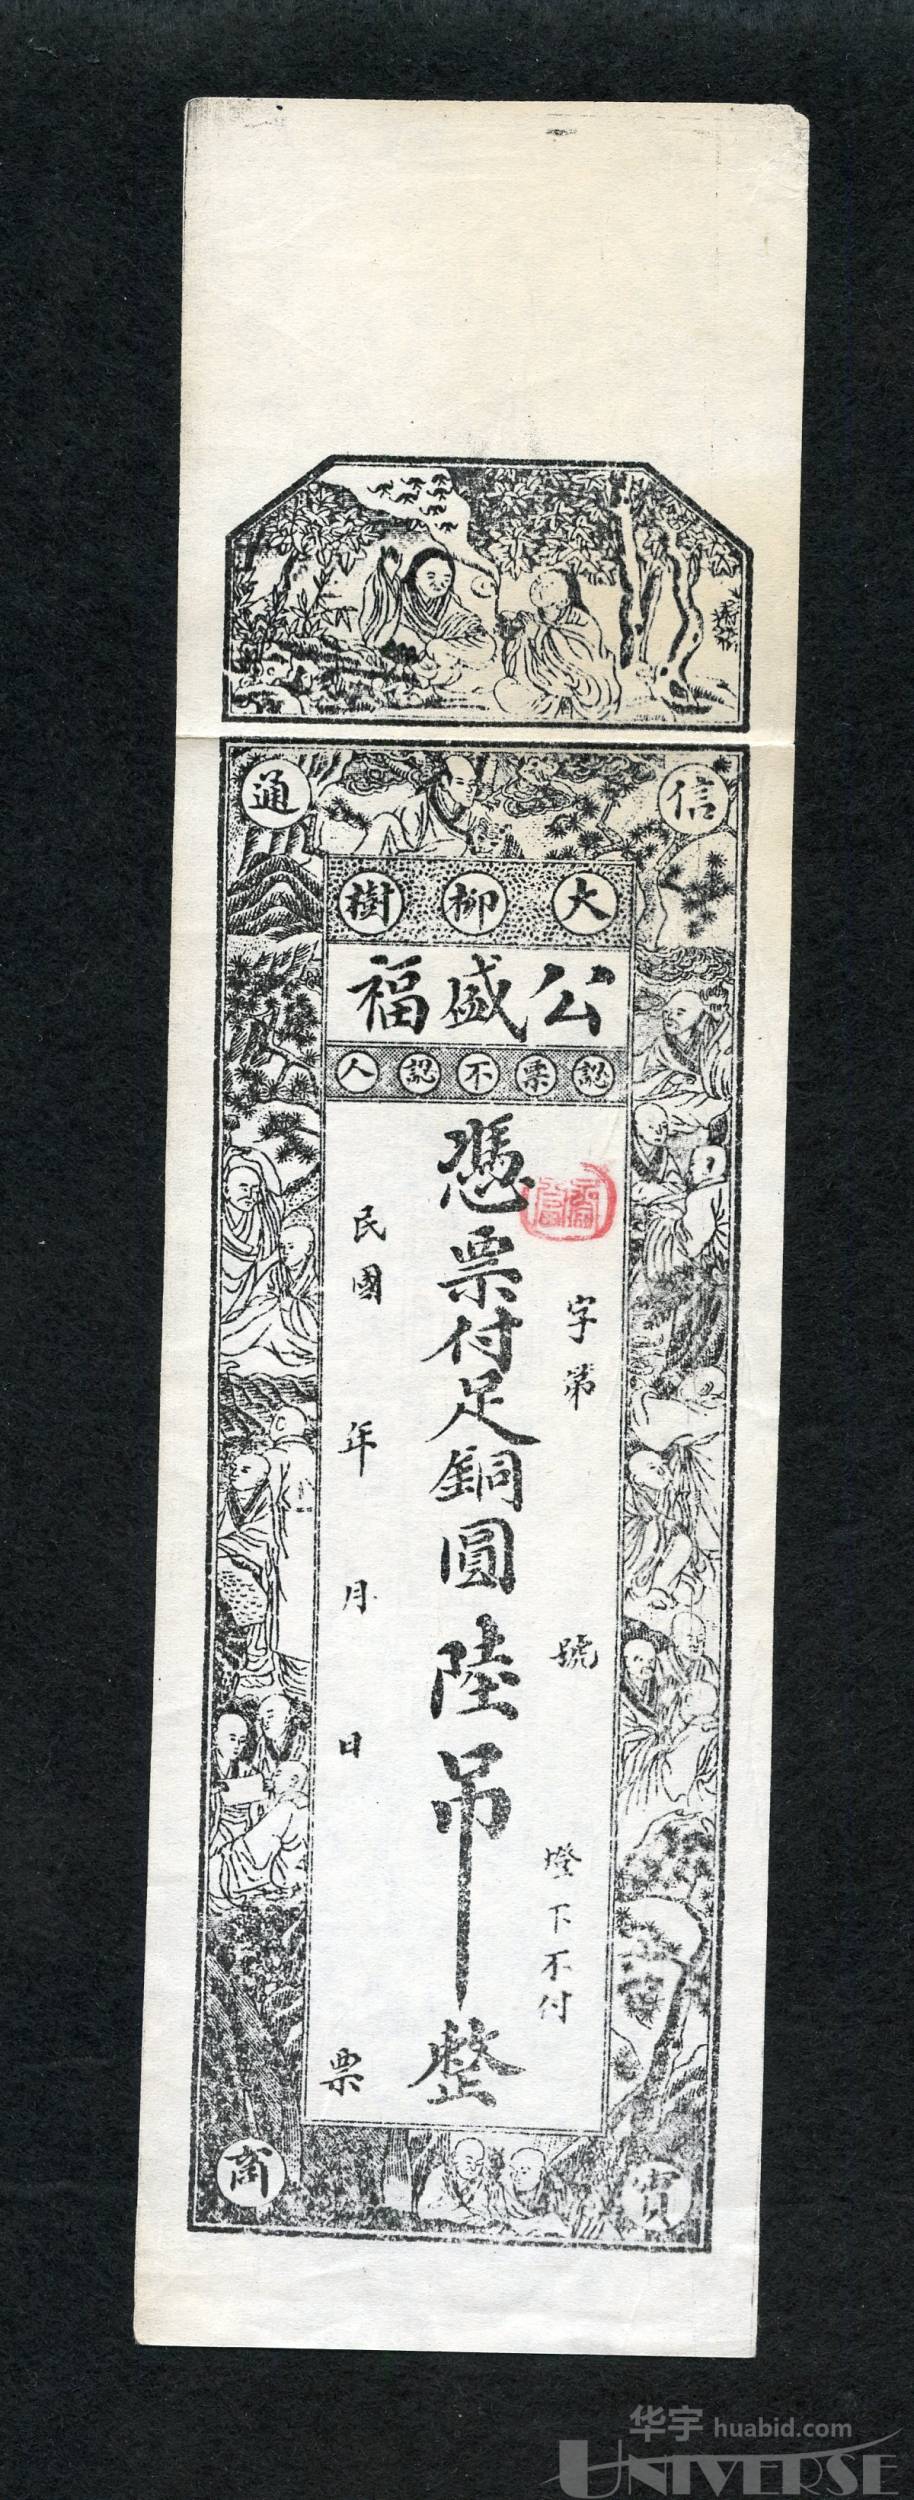 信通
大柳樹
公盛福
認票不認人
憑票付足銅圓陸吊整
字第 號
燈下不付
民國 年 月 日 票
商
华宇 huabid.com
UNIVERSE